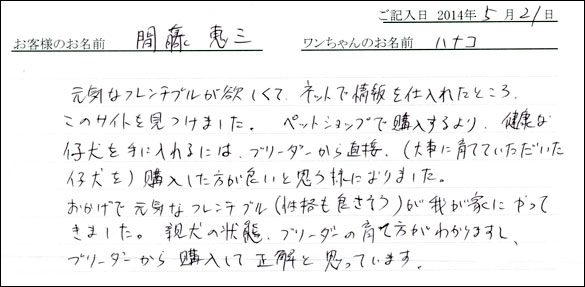 ご記入日 2014年 5月 21日
お客様のお名前 間藤 恵三 ワンちゃんのお名前 ハナコ
元気なフレンチブルが欲しくて、ネットで情報を仕入れたところ、
このサイトを見つけました。 ペットショップで購入するより、健康な
仔犬を手に入れるには、ブリーダーから直接、(大事に育てていただいた
仔犬を)購入した方が良いと思う様になりました。
おかげで元気なフレンチブル(性格も良さそう)が我が家にやって
きました。 親犬の状態、ブリーダーの育て方がわかりますし、
ブリーダーから購入して正解と思っています。